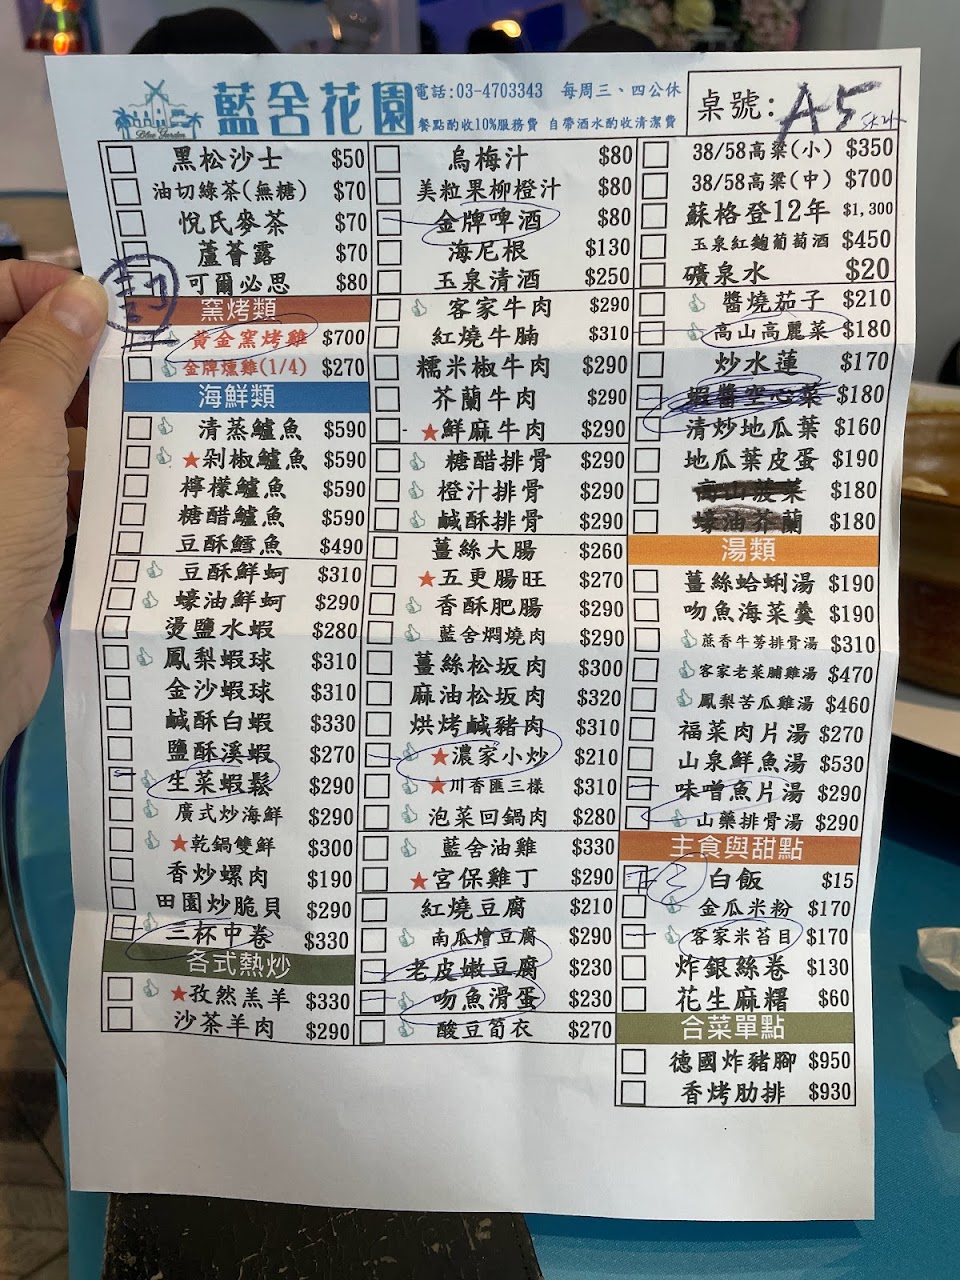 Blue Garden
藍舍花園
電話:03-4703343 每周三、四公休
餐點酌收10%服務費 自帶酒水酌收清潔費
桌號: A5
黑松沙士 $50
油切綠茶(無糖) $70
悅氏麥茶 $70
蘆薈露 $70
可爾必思 $80
窯烤類
黃金窯烤雞 $700
金牌燻雞(1/4) $270
海鮮類
清蒸鱸魚 $590
★剁椒鱸魚 $590
檸檬鱸魚 $590
糖醋鱸魚 $590
豆酥鱈魚 $490
豆酥鮮蚵 $310
蠔油鮮蚵 $290
燙鹽水蝦 $280
鳳梨蝦球 $310
金沙蝦球 $310
鹹酥白蝦 $330
鹽酥溪蝦 $270
生菜蝦鬆 $290
廣式炒海鮮 $290
★乾鍋雙鮮 $300
香炒螺肉 $190
田園炒脆貝 $290
三杯中卷 $330
各式熱炒
★孜然羔羊 $330
沙茶羊肉 $290
烏梅汁 $80
美粒果柳橙汁 $80
金牌啤酒 $80
海尼根 $130
玉泉清酒 $250
客家牛肉 $290
紅燒牛腩 $310
糯米椒牛肉 $290
芥蘭牛肉 $290
★鮮麻牛肉 $290
糖醋排骨 $290
橙汁排骨 $290
鹹酥排骨 $290
薑絲大腸 $260
★五更腸旺 $270
香酥肥腸 $290
藍舍燜燒肉 $290
薑絲松坂肉 $300
麻油松坂肉 $320
烘烤鹹豬肉 $310
★濃家小炒 $210
★川香匯三樣 $310
泡菜回鍋肉 $280
藍舍油雞 $330
★宮保雞丁 $290
紅燒豆腐 $210
南瓜燴豆腐 $290
老皮嫩豆腐 $230
吻魚滑蛋 $230
酸豆筍衣 $270
38/58高粱(小) $350
38/58高粱(中) $700
蘇格登12年 $1,300
玉泉紅麴葡萄酒 $450
礦泉水 $20
醬燒茄子 $210
高山高麗菜 $180
炒水蓮 $170
蝦醬空心菜 $180
清炒地瓜葉 $160
地瓜葉皮蛋 $190
高山菠菜 $180
蠔油芥蘭 $180
湯類
薑絲蛤蜊湯 $190
吻魚海菜羹 $190
蔗香牛蒡排骨湯 $310
客家老菜脯雞湯 $470
鳳梨苦瓜雞湯 $460
福菜肉片湯 $270
山泉鮮魚湯 $530
味噌魚片湯 $290
山藥排骨湯 $290
主食與甜點
白飯 $15
金瓜米粉 $170
客家米苔目 $170
炸銀絲卷 $130
花生麻糬 $60
合菜單點
德國炸豬腳 $950
香烤肋排 $930